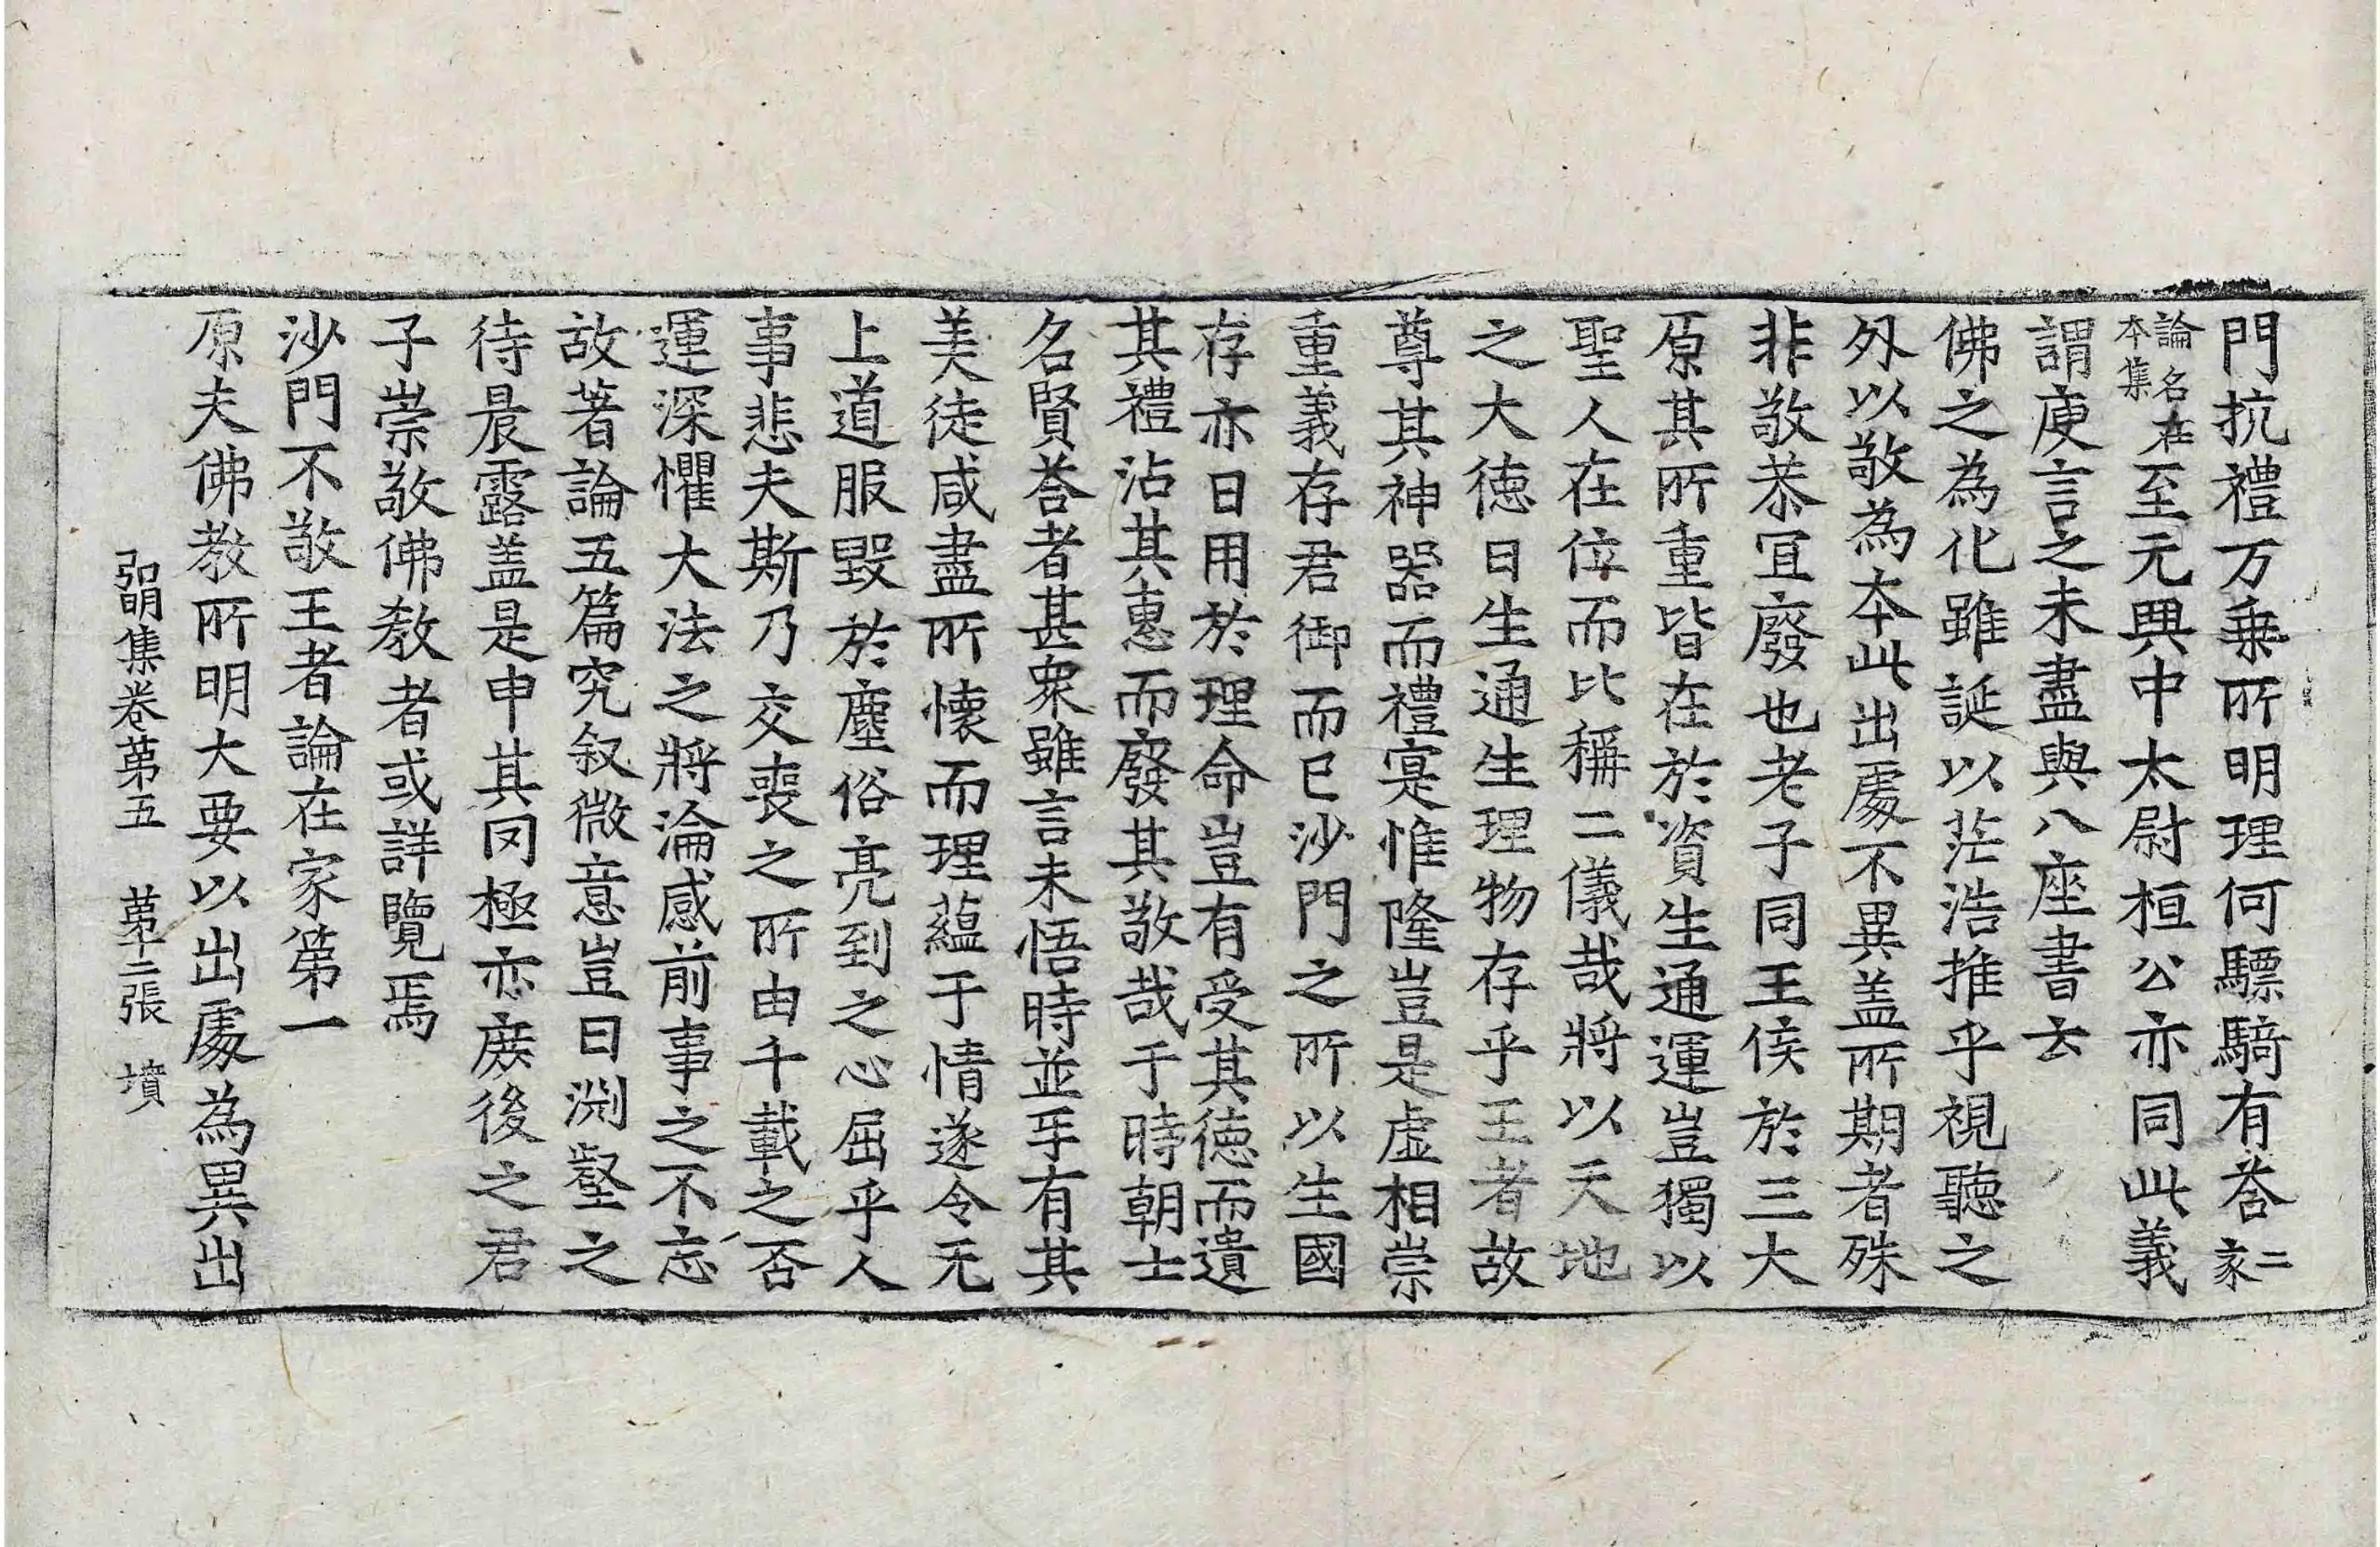 門抗禮万乗所明理何驃騎有荅二家
論名在本集至元興中太尉桓公亦同此義
謂庾言之未盡與八座書云
佛之為化雖誕以茫浩推乎視聽之
外以敬為本此出處不異盖所期者殊
非敬恭冝廢也老子同王侯於三大
原其所重皆在於資生通運豈獨以
聖人在位而比稱二儀哉將以天地
之大徳曰生通生理物存乎王者故
尊其神器而禮寔惟隆豈是虚相崇
重義存君御而已沙門之所以生國
存亦日用於理命豈有受其徳而遺
其禮沾其惠而廢其敬哉于時朝士
名賢荅者甚衆雖言未悟時並㸦有其
美徒咸盡所懐而理蘊于情遂令无
上道服毀於塵俗亮到之心屈乎人
事悲夫斯乃交䘮之所由千載之否
運深懼大法之將淪感前事之不忘
故著論五篇究叙微意豈曰渕壑之
待晨露盖是申其罔極亦庶後之君
子崇敬佛教者或詳覽焉
沙門不敬王者論在家第一
原夫佛教所明大要以出處為異出
弘明集卷第五 第十二張 墳